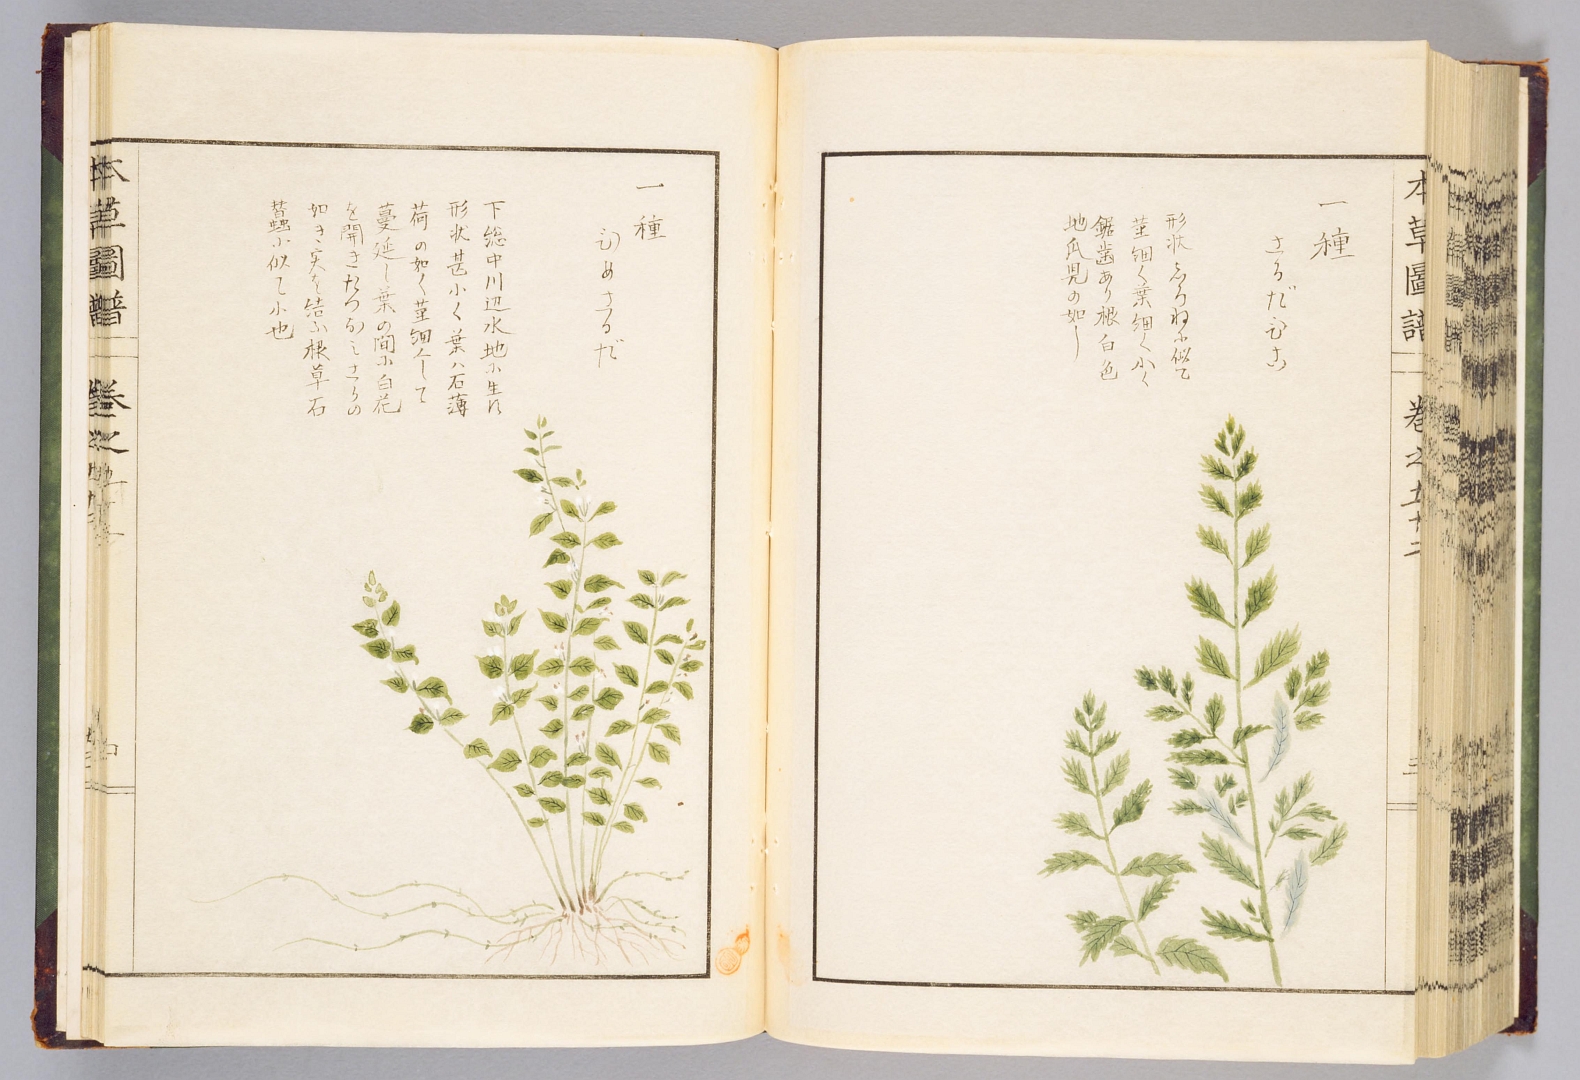 本草圖譜 巻之五十二
一種
さるだひこ
形状しろねに似て
茎細く葉細く小く
鋸歯あり根白色
地瓜児の如し
一種
ひめさるだ
下総中川辺水地に生ス
形状甚小く葉ハ石薄
荷の如く茎細くして
蔓延し葉の間に白花
を開きたつなみさうの
如き実を結ふ根草石
蠶に似て小也
本草圖譜 巻之